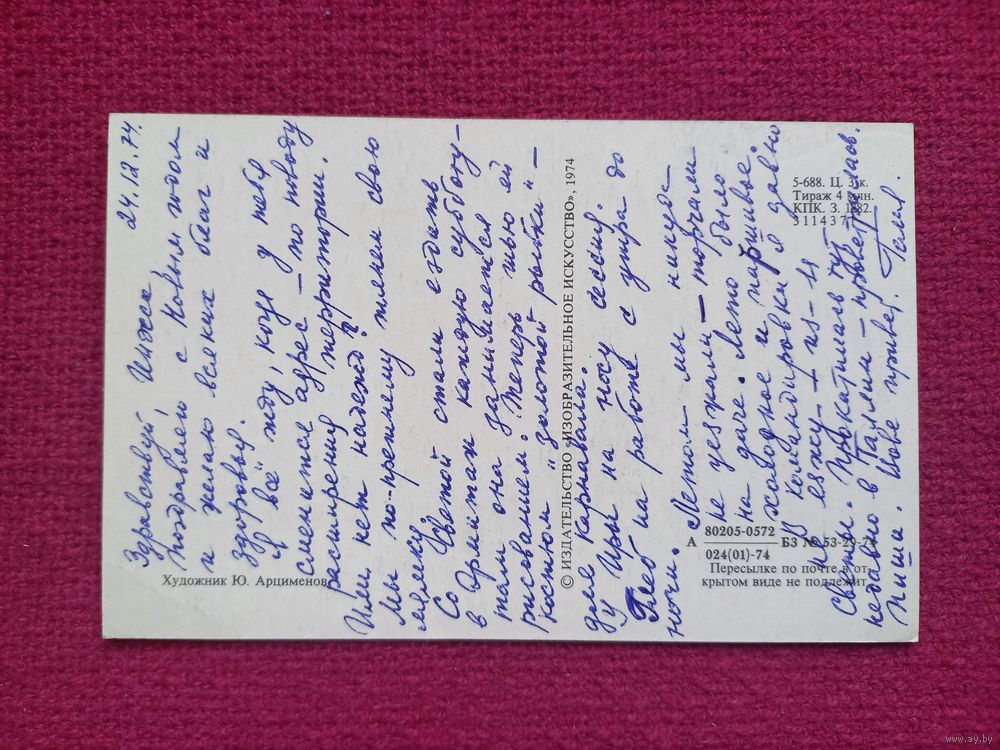 24.12.74.
Здравствуй, Инчек
Поздравляем с Новым годом
и желаю всяких благ и
здоровья.
Я всё жду, когда у тебя
сменится адрес – по поводу
расширения территории.
Или нет надежд?
Мы по-прежнему тянем свою
лямку.
Со Светой стали ездить
в Эрмитаж каждую субботу –
там она занимается
рисованием. Теперь шью ей
костюм "золотой рыбки" –
для карнавала.
У Иры на носу сессия.
Глеб на работе с утра до
ночи.
Летом мы никуда
не уезжали – торчали
на даче. Лето было
холодное и паршивое.
В командировки я давно
не езжу – из-за
Светы. Прокатилась тут
недавно в Таллин – проветрилась.
Пиши. Иове привет. Геля
Художник Ю. Арцименев
© ИЗДАТЕЛЬСТВО «ИЗОБРАЗИТЕЛЬНОЕ ИСКУССТВО», 1974
5-688. Ц. 3 к.
Тираж 4 млн.
КПК. З. 1882.
511437
А 80205-0572 БЗ № 53-29-74
024(01)-74
Пересылке по почте в от-
крытом виде не подлежит
www.ay.by